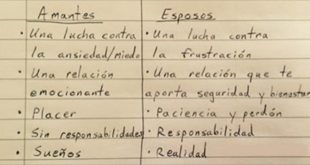 Amantes Esposos
• Una lucha contra • Una lucha contra
la ansiedad/miedo la frustración
• Una relación • Una relación que te
emocionante aporta seguridad y bienestar
• Placer • Paciencia y perdón
• Sin responsabilidades • Responsabilidad
• Sueños • Realidad